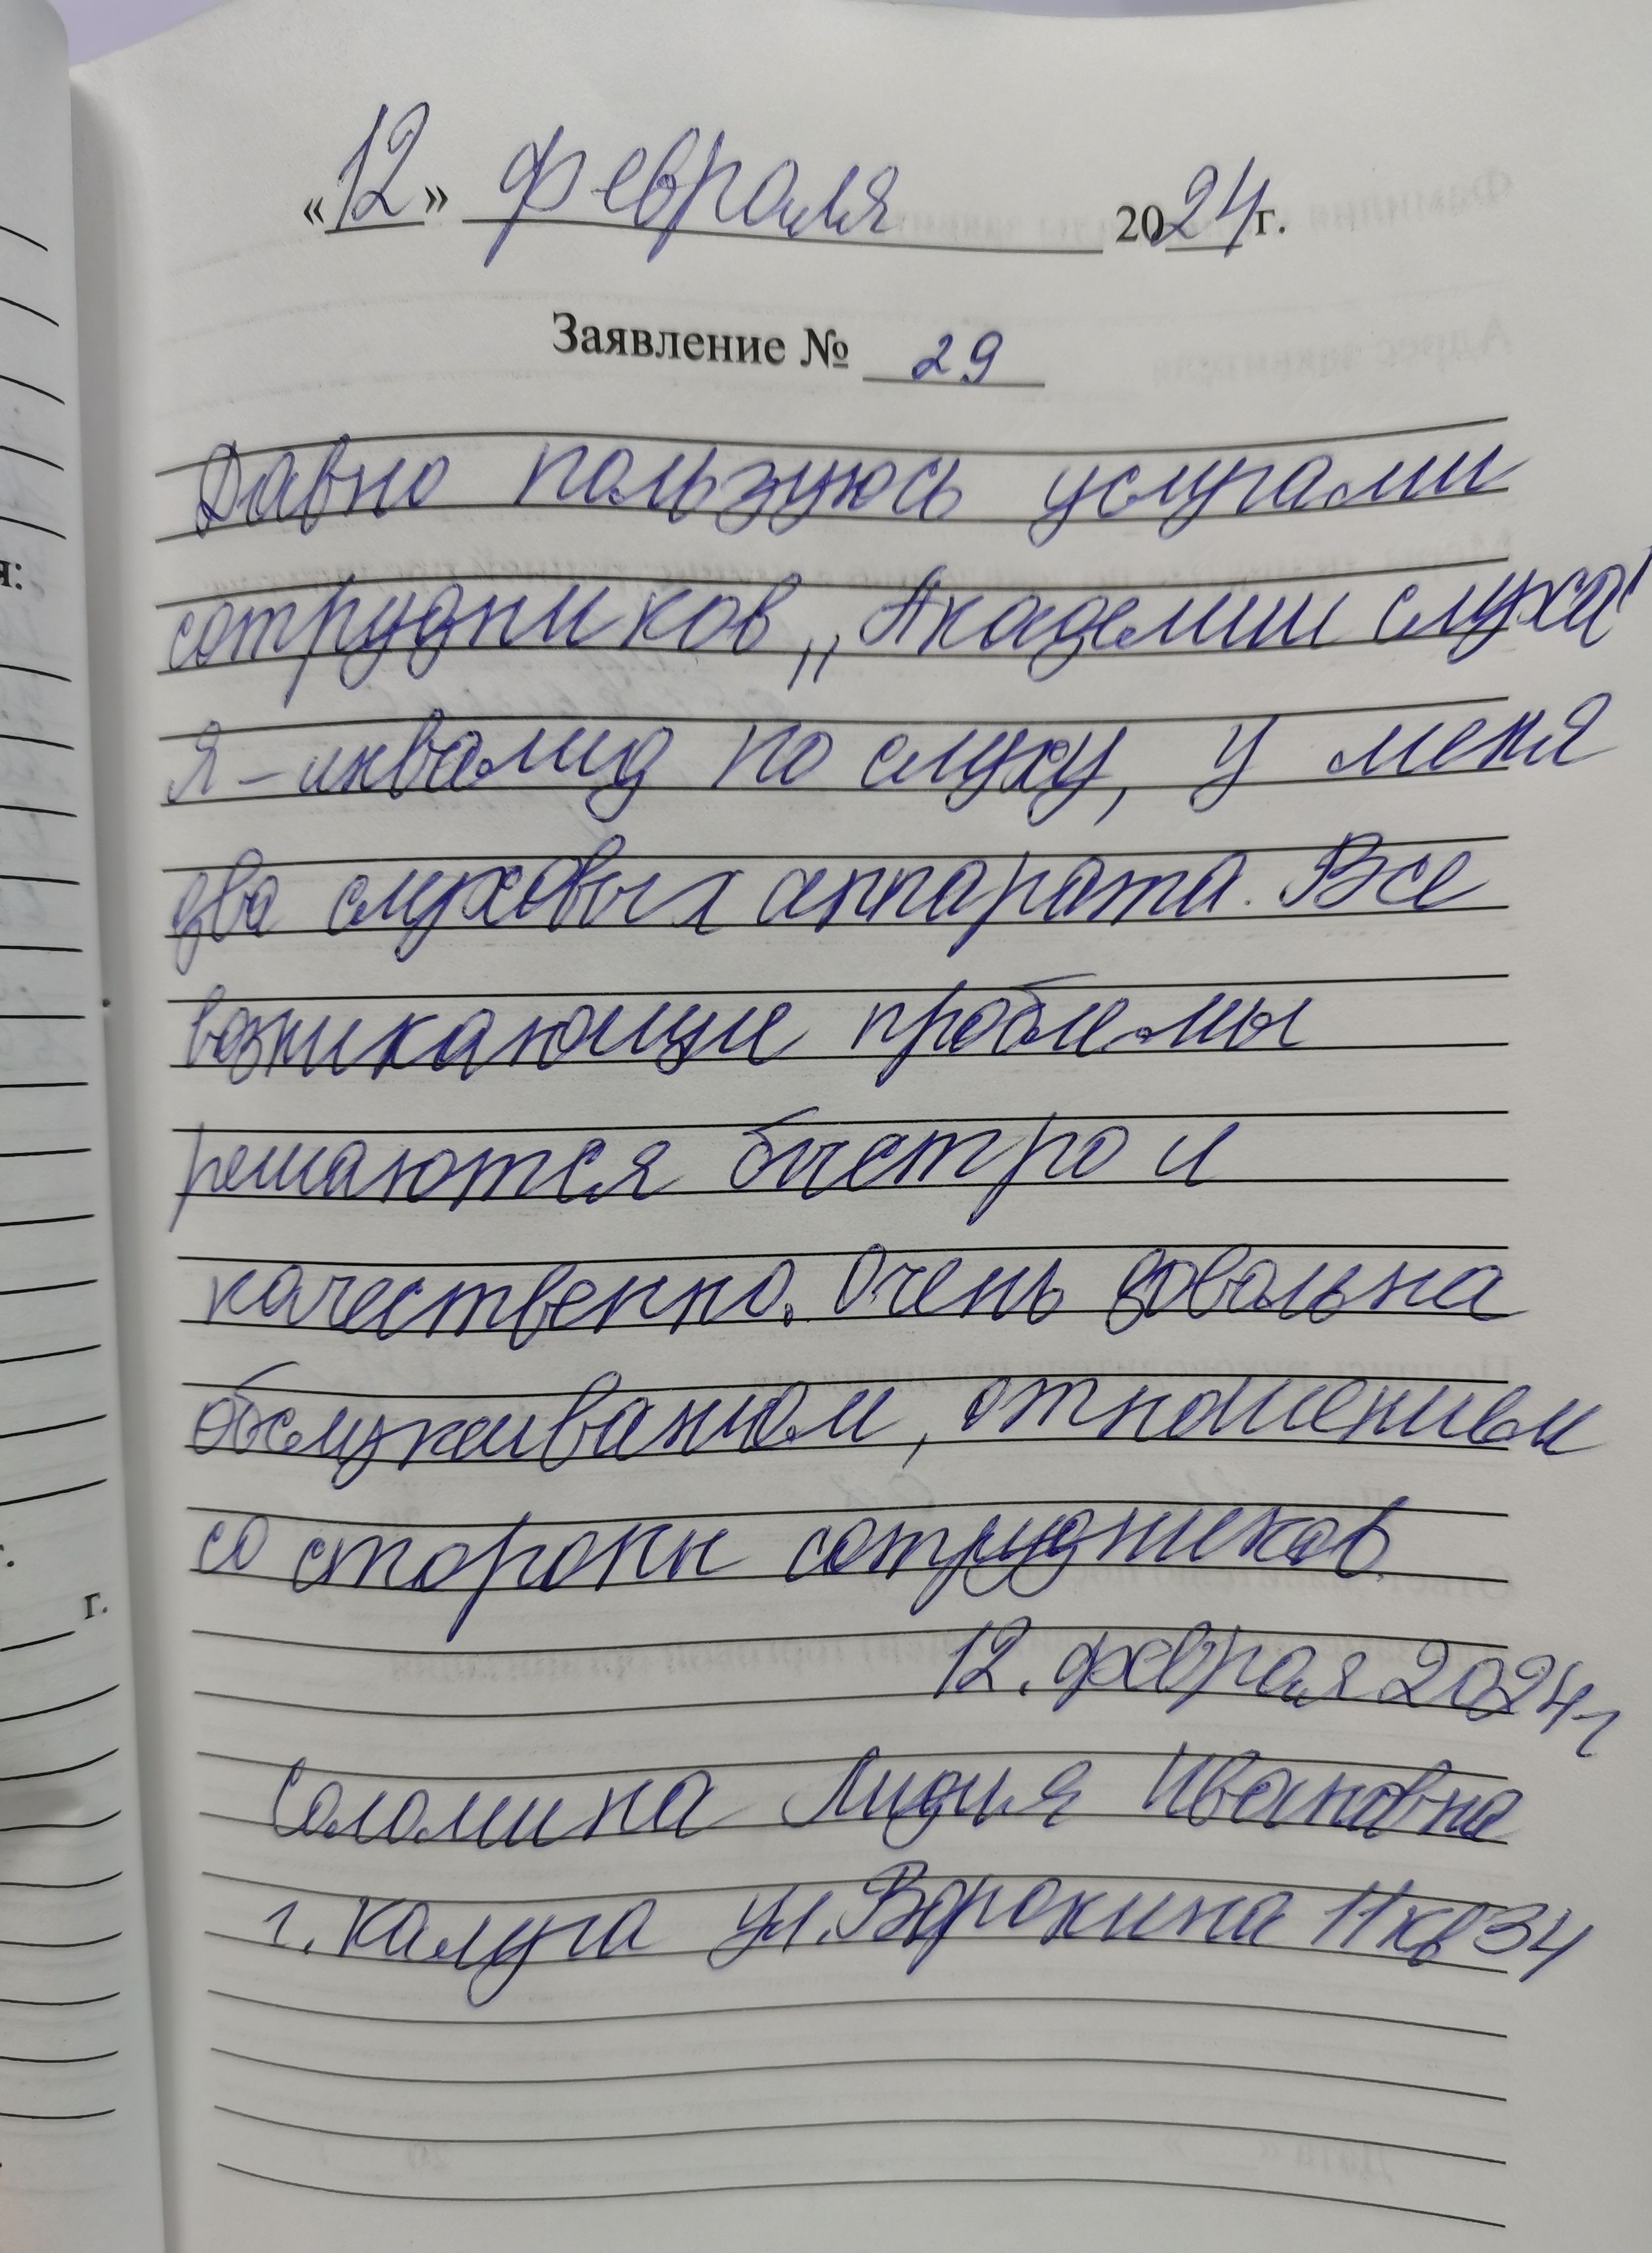 «12» февраля 2024г.
Заявление № 29
Давно пользуюсь услугами
сотрудников „Академии слуха"
Я – инвалид по слуху, у меня
два слуховых аппарата. Все
возникающие проблемы
решаются быстро и
качественно. Очень довольна
обслуживанием, отношением
со стороны сотрудников.
12. феврая 2024г
Соломина Лидия Ивановна
г. Калуга ул. Воронина 11 кв 34
я:
г.